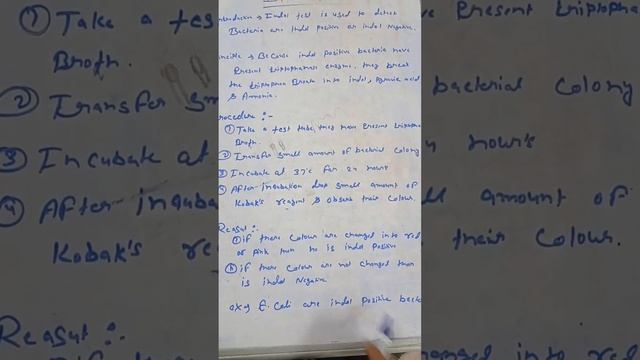 Introduction → Indol test is used to detect
Bacteria are Indol positive or indol Negative.
Principle → Because indol positive bacteria have
Present tryptophanase enzyme. they break
the tryptophan Broth into indol, Pyruvic acid
& Ammonia.
Procedure :-
① Take a test tube, they have Present tryptophan
Broth.
② Transfer small amount of bacterial colony
③ Incubate at 37°c for 24 hours
④ After incubation drop small amount of
Kobak's reagent & observe their colour.
Reasut :-
① if there colour are changed into red
or pink then he is indol Positive
② if there colour are not changed then
is indol Negative
ex → E. Coli are indol positive bacte